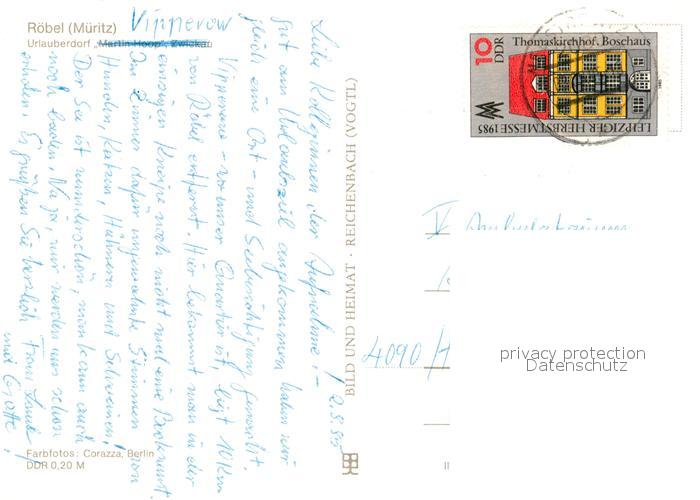 Röbel (Müritz) Vipperow
Urlauberdorf „Martin Hoop", Zwickau
Liebe Kolleginnen der Aufnahme! –
2.9.85
gut am Urlaubsziel angekommen haben wir
gleich eine Ort- und Seebesichtigung gemacht.
Vipperow – wo unser Quartier ist, liegt 10 km
von Röbel entfernt. Hier bekommt man in der
einzigen Kneipe noch nicht mal eine Bockwurst.
Im Zimmer dafür ungewohnte Stimmen von
Hunden, Katzen, Hühnern und Schweinen!
Der See ist wunderschön, man kann auch
noch baden. Na ja, wir werden uns schon
erholen. Es grüßen Sie herzlich Frau
und Gatte!
Farbfotos: Corazza, Berlin
DDR 0,20 M
BILD UND HEIMAT · REICHENBACH (VOGTL)
II
10
DDR
Thomaskirchhof, Boschaus
LEIPZIGER HERBSTMESSE 1985
1985
V
4090 / H
privacy protection
Datenschutz